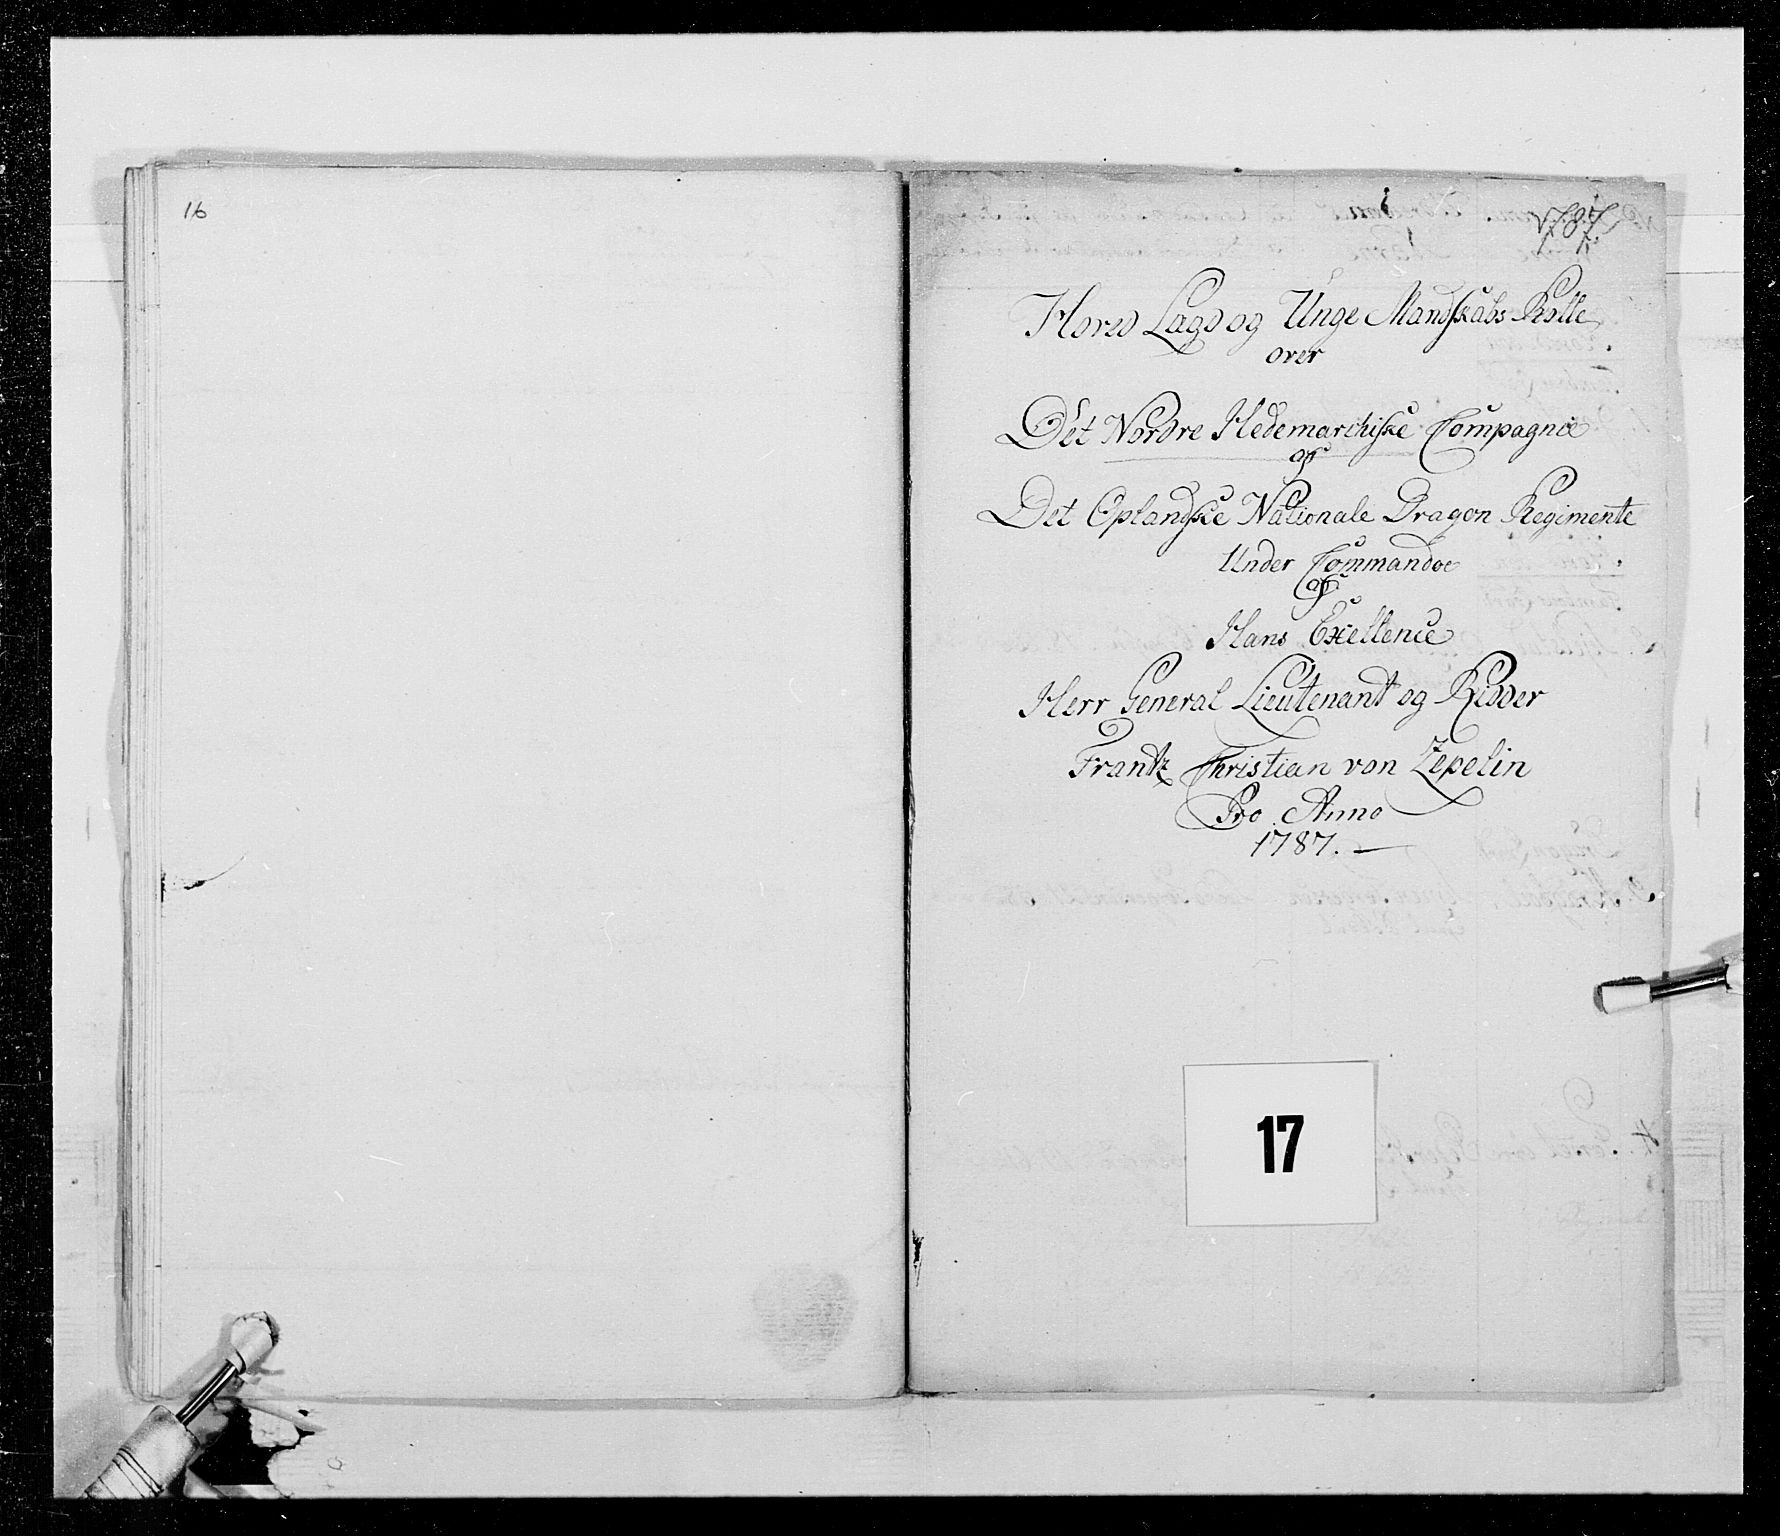 16
1787
Hoved Lægd og Unge Mandskabs Rolle
over
Det Nordre Hedemarchiske Compagnie
af
Det Oplandske Nationale Dragon Regimente
Under Commandoe
af
Hans Exellence
Herr General Lieutenant og Ridder
Frantz Christian von Zepelin
Pro Anno
1787. —
17